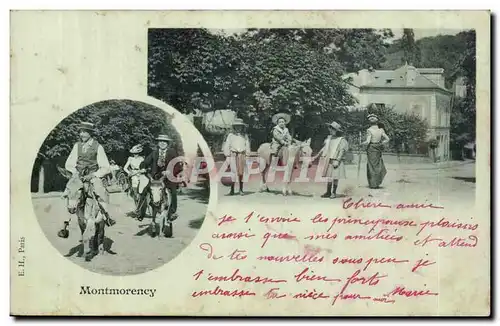 CPAPHIL.com
Chère amie
je t'envoie les principeause plaisirs
ainsi que mes amitiés et attend
de tes nouvelles sous peu je
t'embrasse bien forts
embrasse ta nièce pour moi Marie
E. H., Paris
Montmorency